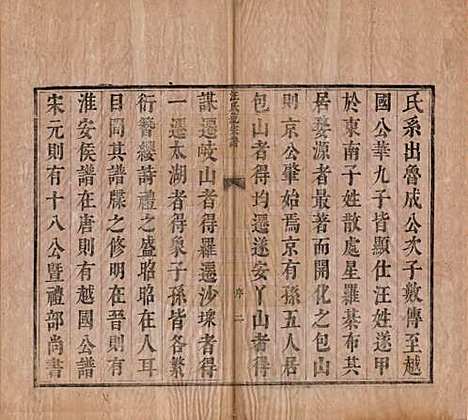 氏系出魯成公次子敫傳至越
國公華九子皆顯仕汪姓遂甲
於東南子姓散處星羅棊布其
居婺源者最著而開化之包山
則京公肇始焉京有孫五人居
包山者得均遷遂安丫山者得
序 二
謀遷岐山者得羅遷沙墚者得
一遷太湖者得泉子孫皆各蕃
衍簪纓詩禮之盛昭昭在人耳
目間其譜牒之修明在晉則有
淮安侯譜在唐則有越國公譜
宋元則有十八公暨禮部尚書